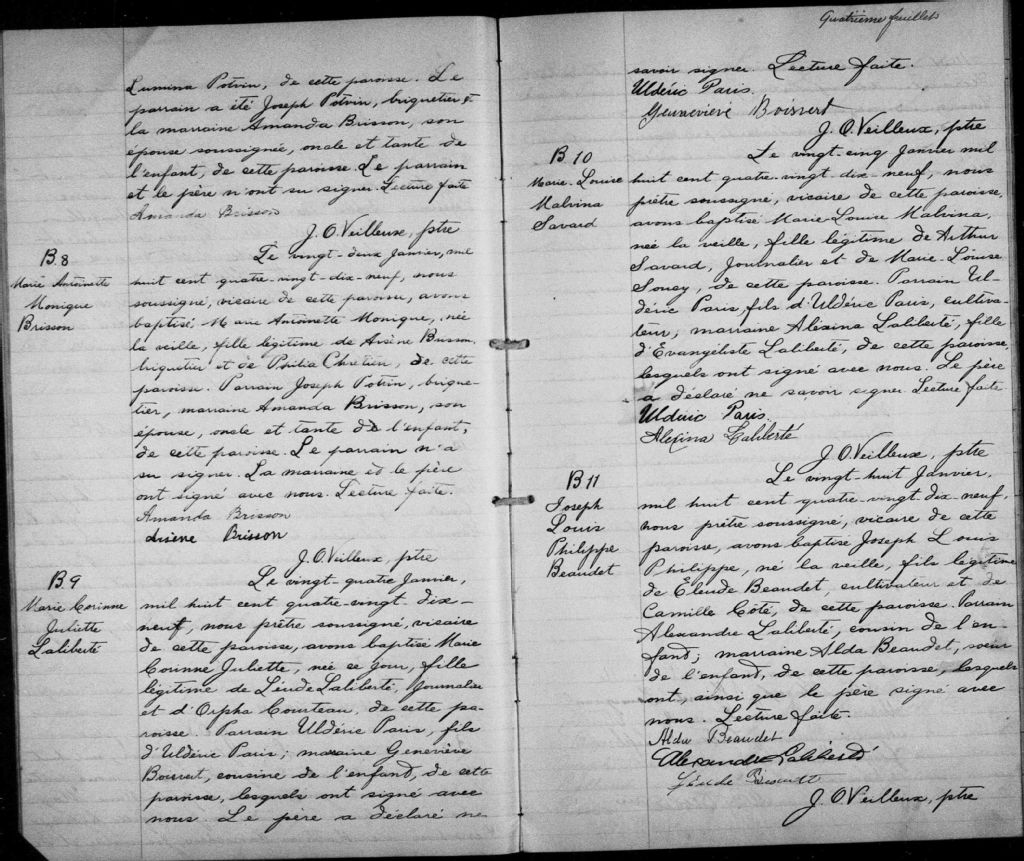 Lumina Potvin, de cette paroisse. Le
parrain a été Joseph Potvin, briquetier &
la marraine Amanda Brisson, son
épouse soussignée, oncle et tante de
l'enfant, de cette paroisse. Le parrain
et le père n'ont su signer. Lecture faite
Amanda Brisson
J. O. Veilleux, ptre
B 8
Marie Antoinette
Monique
Brisson
Le vingt-deux Janvier, mil
huit cent quatre-vingt-dix-neuf, nous
soussigné, vicaire de cette paroisse, avons
baptisé, Marie Antoinette Monique, née
la veille, fille légitime de Arsène Brisson,
briquetier et de Philia Chretien, de cette
paroisse. Parrain Joseph Potvin, brique-
tier, marraine Amanda Brisson, son
épouse, oncle et tante de l'enfant,
de cette paroisse. Le parrain n'a
su signer. La marraine et le père
ont signé avec nous. Lecture faite.
Amanda Brisson
Arsene Brisson
J. O. Veilleux, ptre
B 9
Marie Corinne
Juliette
Laliberté
Le vingt-quatre Janvier,
mil huit cent quatre-vingt-dix-
neuf, nous prêtre soussigné, vicaire
de cette paroisse, avons baptisé Marie
Corinne Juliette, née ce jour, fille
légitime de Léude Laliberté, Journalier
et d'Orpha Courteau, de cette pa-
roisse. Parrain Uldéric Paris, fils
d'Uldéric Paris; marraine Geneviève
Boisvert, cousine de l'enfant, de cette
paroisse, lesquels ont signé avec
nous. Le père a déclaré ne
Quatrième feuillet
savoir signer. Lecture faite.
Ulderic Paris.
Genevieve Boisvert
J. O. Veilleux, ptre
B 10
Marie-Louise
Malvina
Savard
Le vingt-cinq Janvier mil
huit cent quatre-vingt-dix-neuf, nous
prêtre soussigné, vicaire de cette paroisse,
avons baptisé Marie-Louise Malvina,
née la veille, fille légitime de Arthur
Savard, Journalier et de Marie-Louise
Soucy, de cette paroisse. Parrain Ul-
déric Paris, fils d'Uldéric Paris, cultiva-
teur; marraine Alexina Laliberté, fille
d'Evangéliste Laliberté, de cette paroisse,
lesquels ont signé avec nous. Le père
a déclaré ne savoir signer. Lecture faite
Ulderic Paris.
Alexina Laliberté
J. O. Veilleux, ptre
B 11
Joseph
Louis
Philippe
Beaudet
Le vingt-huit Janvier,
mil huit cent quatre-vingt-dix-neuf,
nous prêtre soussigné, vicaire de cette
paroisse, avons baptisé Joseph Louis
Philippe, né la veille, fils légitime
de Elude Beaudet, cultivateur et de
Camille Côté, de cette paroisse. Parrain
Alexandre Laliberté, cousin de l'en-
fant; marraine Alda Beaudet, soeur
de l'enfant, de cette paroisse, lesquels
ont, ainsi que le père signé avec
nous. Lecture faite.
Alda Beaudet
Alexandre Laliberté
J. O. Veilleux, ptre